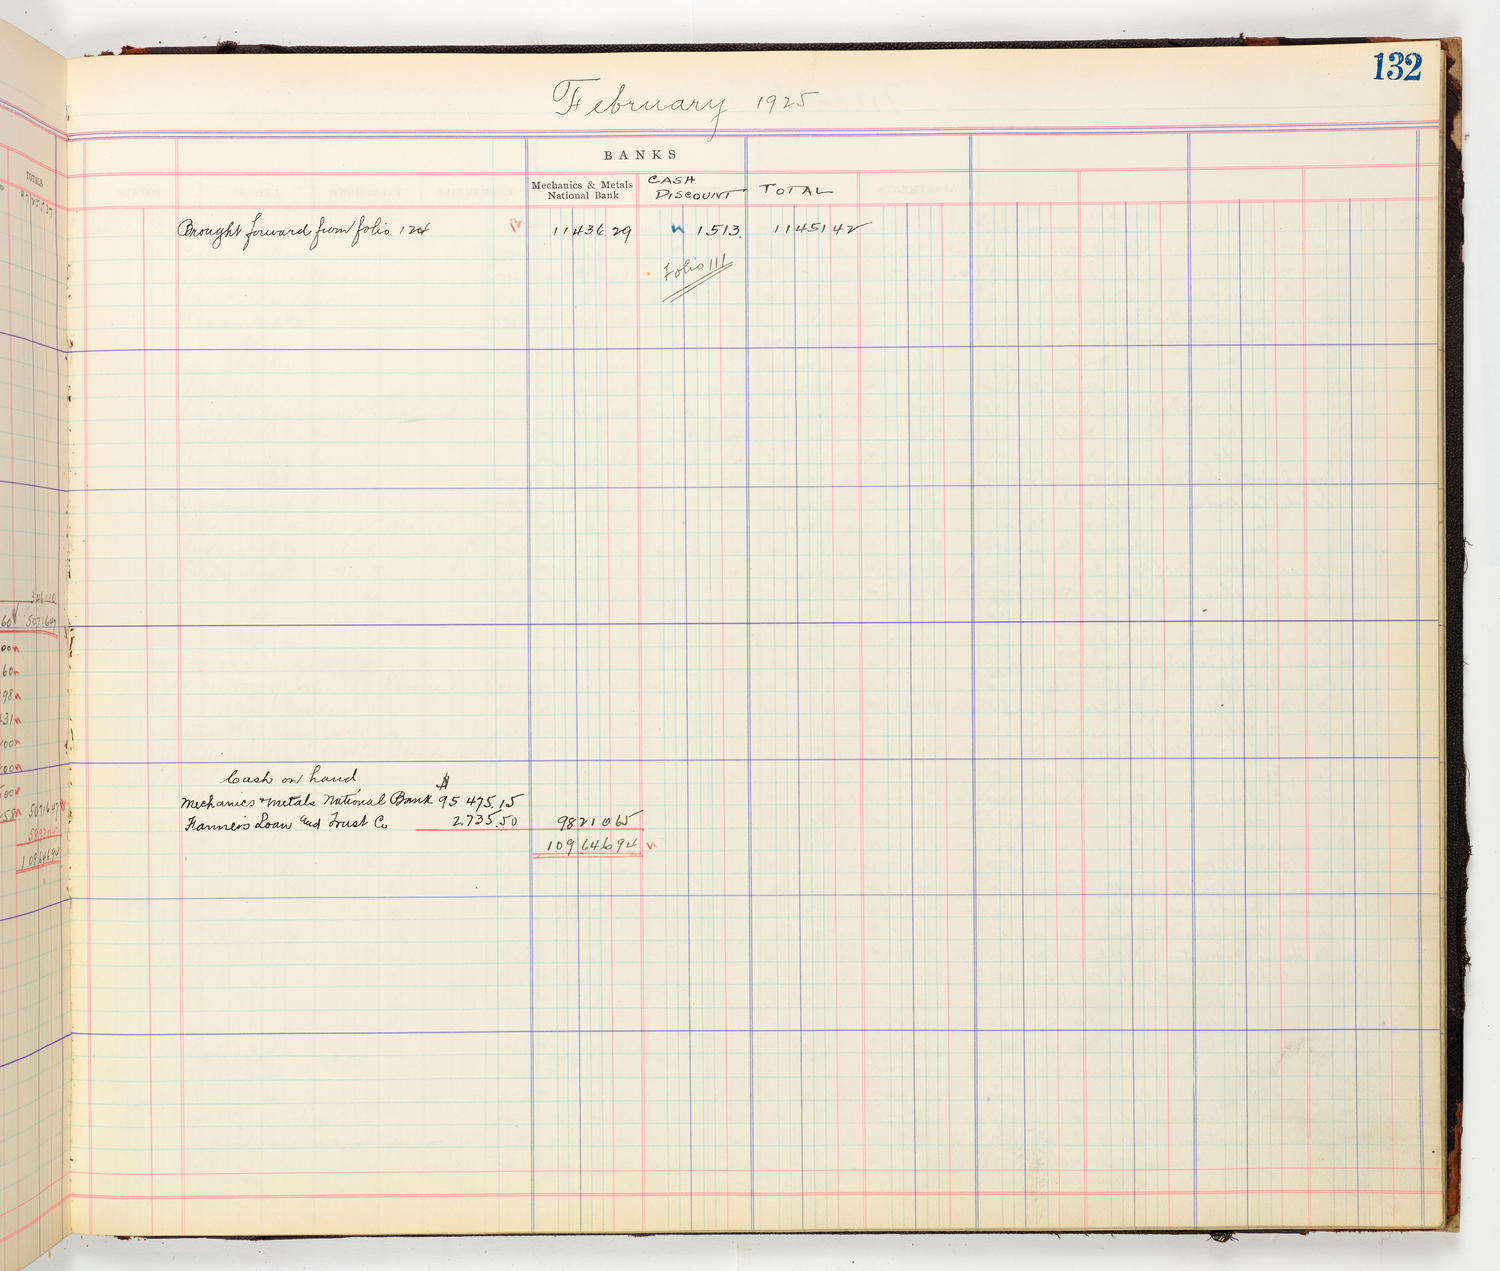 132
February 1925
BANKS
Mechanics & Metals National Bank
CASH DISCOUNT
TOTAL
Brought forward from folio 124 11436 29 1513. 1145142
Folio 111
Cash on hand
$
Mechanics + Metals National Bank 95 475.15
Farmers Loan and Trust Co 2.735.50 9821065
10964694
TOTALS
346110
60 5071647
00
60
98
31
00
00
00
58 5071647
10964694